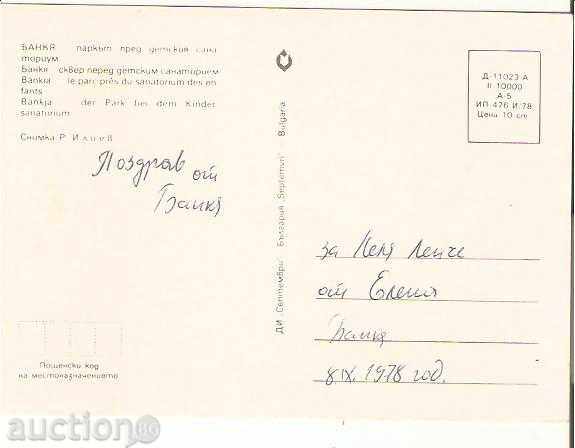 БАНКЯ паркът пред детския сана
ториум
Банкя сквер перед детским санаторием
Bankia le parc près du sanatorium des en
fants
Bankja der Park bei dem Kinder
sanatorium
Снимка Р Илиев
Поздрав
от
Банкя
ДИ „Септември" България „Septemvri" Bulgaria
Д-11023 А
II 10000
А-5
ИП 476 И 78
Цена 10 ст
за Леля Ленче
от Елена
Банкя
8 IX. 1978 год.
Пощенски код
на местоназначението
auction BG